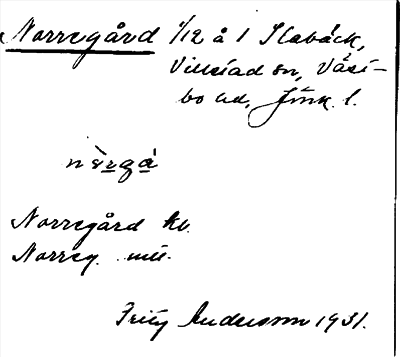 Norregård 1/12 å 1 Slabäck,
Villstad sn, Väst-
bo hd, Jönk. l.
nèrgá
Norregård kb.
Norreg. mtl.
Frity Anderson 1931.